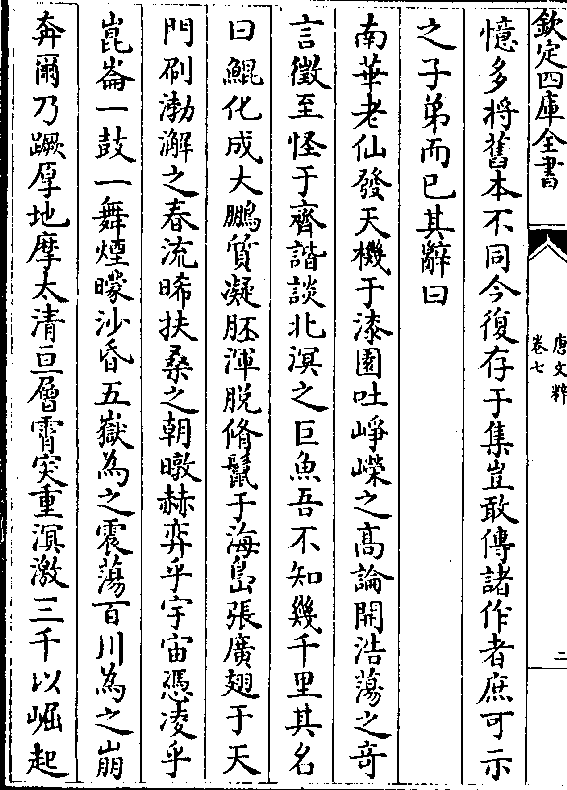 欽定四庫全書
唐文粹
卷七
二
憶多將舊本不同今復存于集豈敢傳諸作者庶可示
之子弟而已其辭曰
南華老仙發天機于漆園吐崢嶸之高論開浩蕩之竒
言徵至怪于齊諧談北溟之巨魚吾不知幾千里其名
曰鯤化成大鵬質凝胚渾脱脩鬛于海島張廣翅于天
門刷渤澥之春流晞扶桑之朝暾赫弈乎宇宙憑凌乎
崑崙一鼓一舞煙曚沙昏五嶽為之震蕩百川為之崩
奔爾乃蹶厚地摩太清亘層霄突重溟激三千以崛起